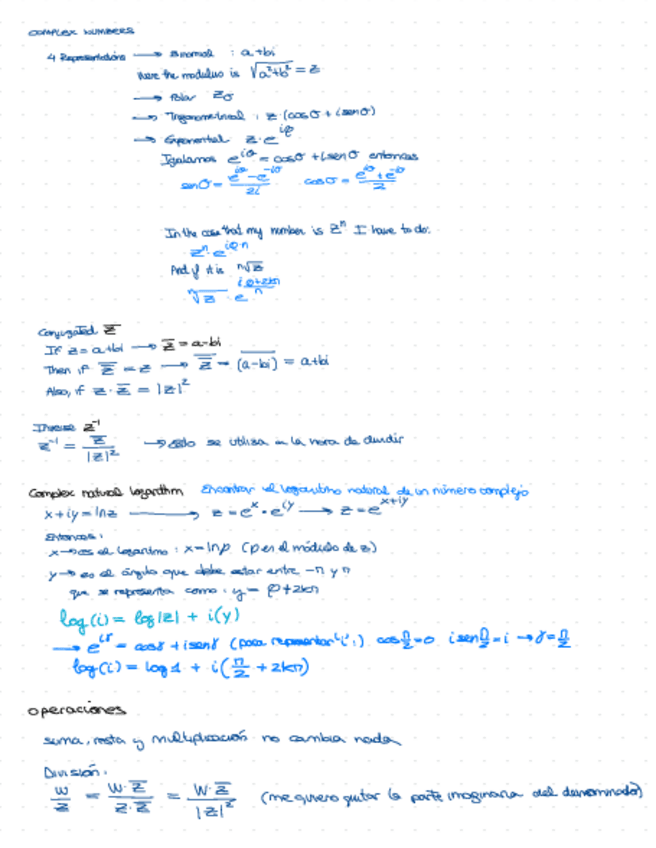 COMPLEX NUMBERS
4 Representations → Binomial : a+bi
Here the modulus is √(a²+b²) = z
→ Polar z_σ
→ Trigonometrical : z·(cosσ + i senσ)
→ Exponential z·e^(iφ)
Igualamos e^(iσ) = cosσ + i senσ entonces
senσ = (e^(iσ) − e^(−iσ))/2i cosσ = (e^(iσ) + e^(−iσ))/2
In the case that my number is zⁿ I have to do:
zⁿ·e^(iφ·n)
And if it is ⁿ√z
ⁿ√z · e^(i (φ+2kπ)/n)
Conjugated z̅
If z = a+bi → z̅ = a-bi
Then if z̅ = z → z̅ = \overline{(a-bi)} = a+bi
Also, if z·z̅ = |z|²
Inverse z⁻¹
z⁻¹ = z̅/|z|² → esto se utiliza en la hora de dividir
Complex natural logarithm Encontrar el logaritmo natural de un número complejo
x+iy = ln z → z = e^x · e^(iy) → z = e^(x+iy)
Entonces:
x → es el logaritmo : x = lnρ (ρ en el módulo de z)
y → es el ángulo que debe estar entre -π y π
que se representa como : y = φ+2kπ
log(i) = log|z| + i(y)
→ e^(iγ) = cosγ + i senγ (para representar "i":) cos π/2 = 0 i sen π/2 = i → γ = π/2
log(i) = log 1 + i(π/2 + 2kπ)
operaciones
suma, resta y multiplicación no cambia nada
División:
w/z = (w·z̅)/(z·z̅) = (w·z̅)/|z|² (me quiero quitar la parte imaginaria del denominador)